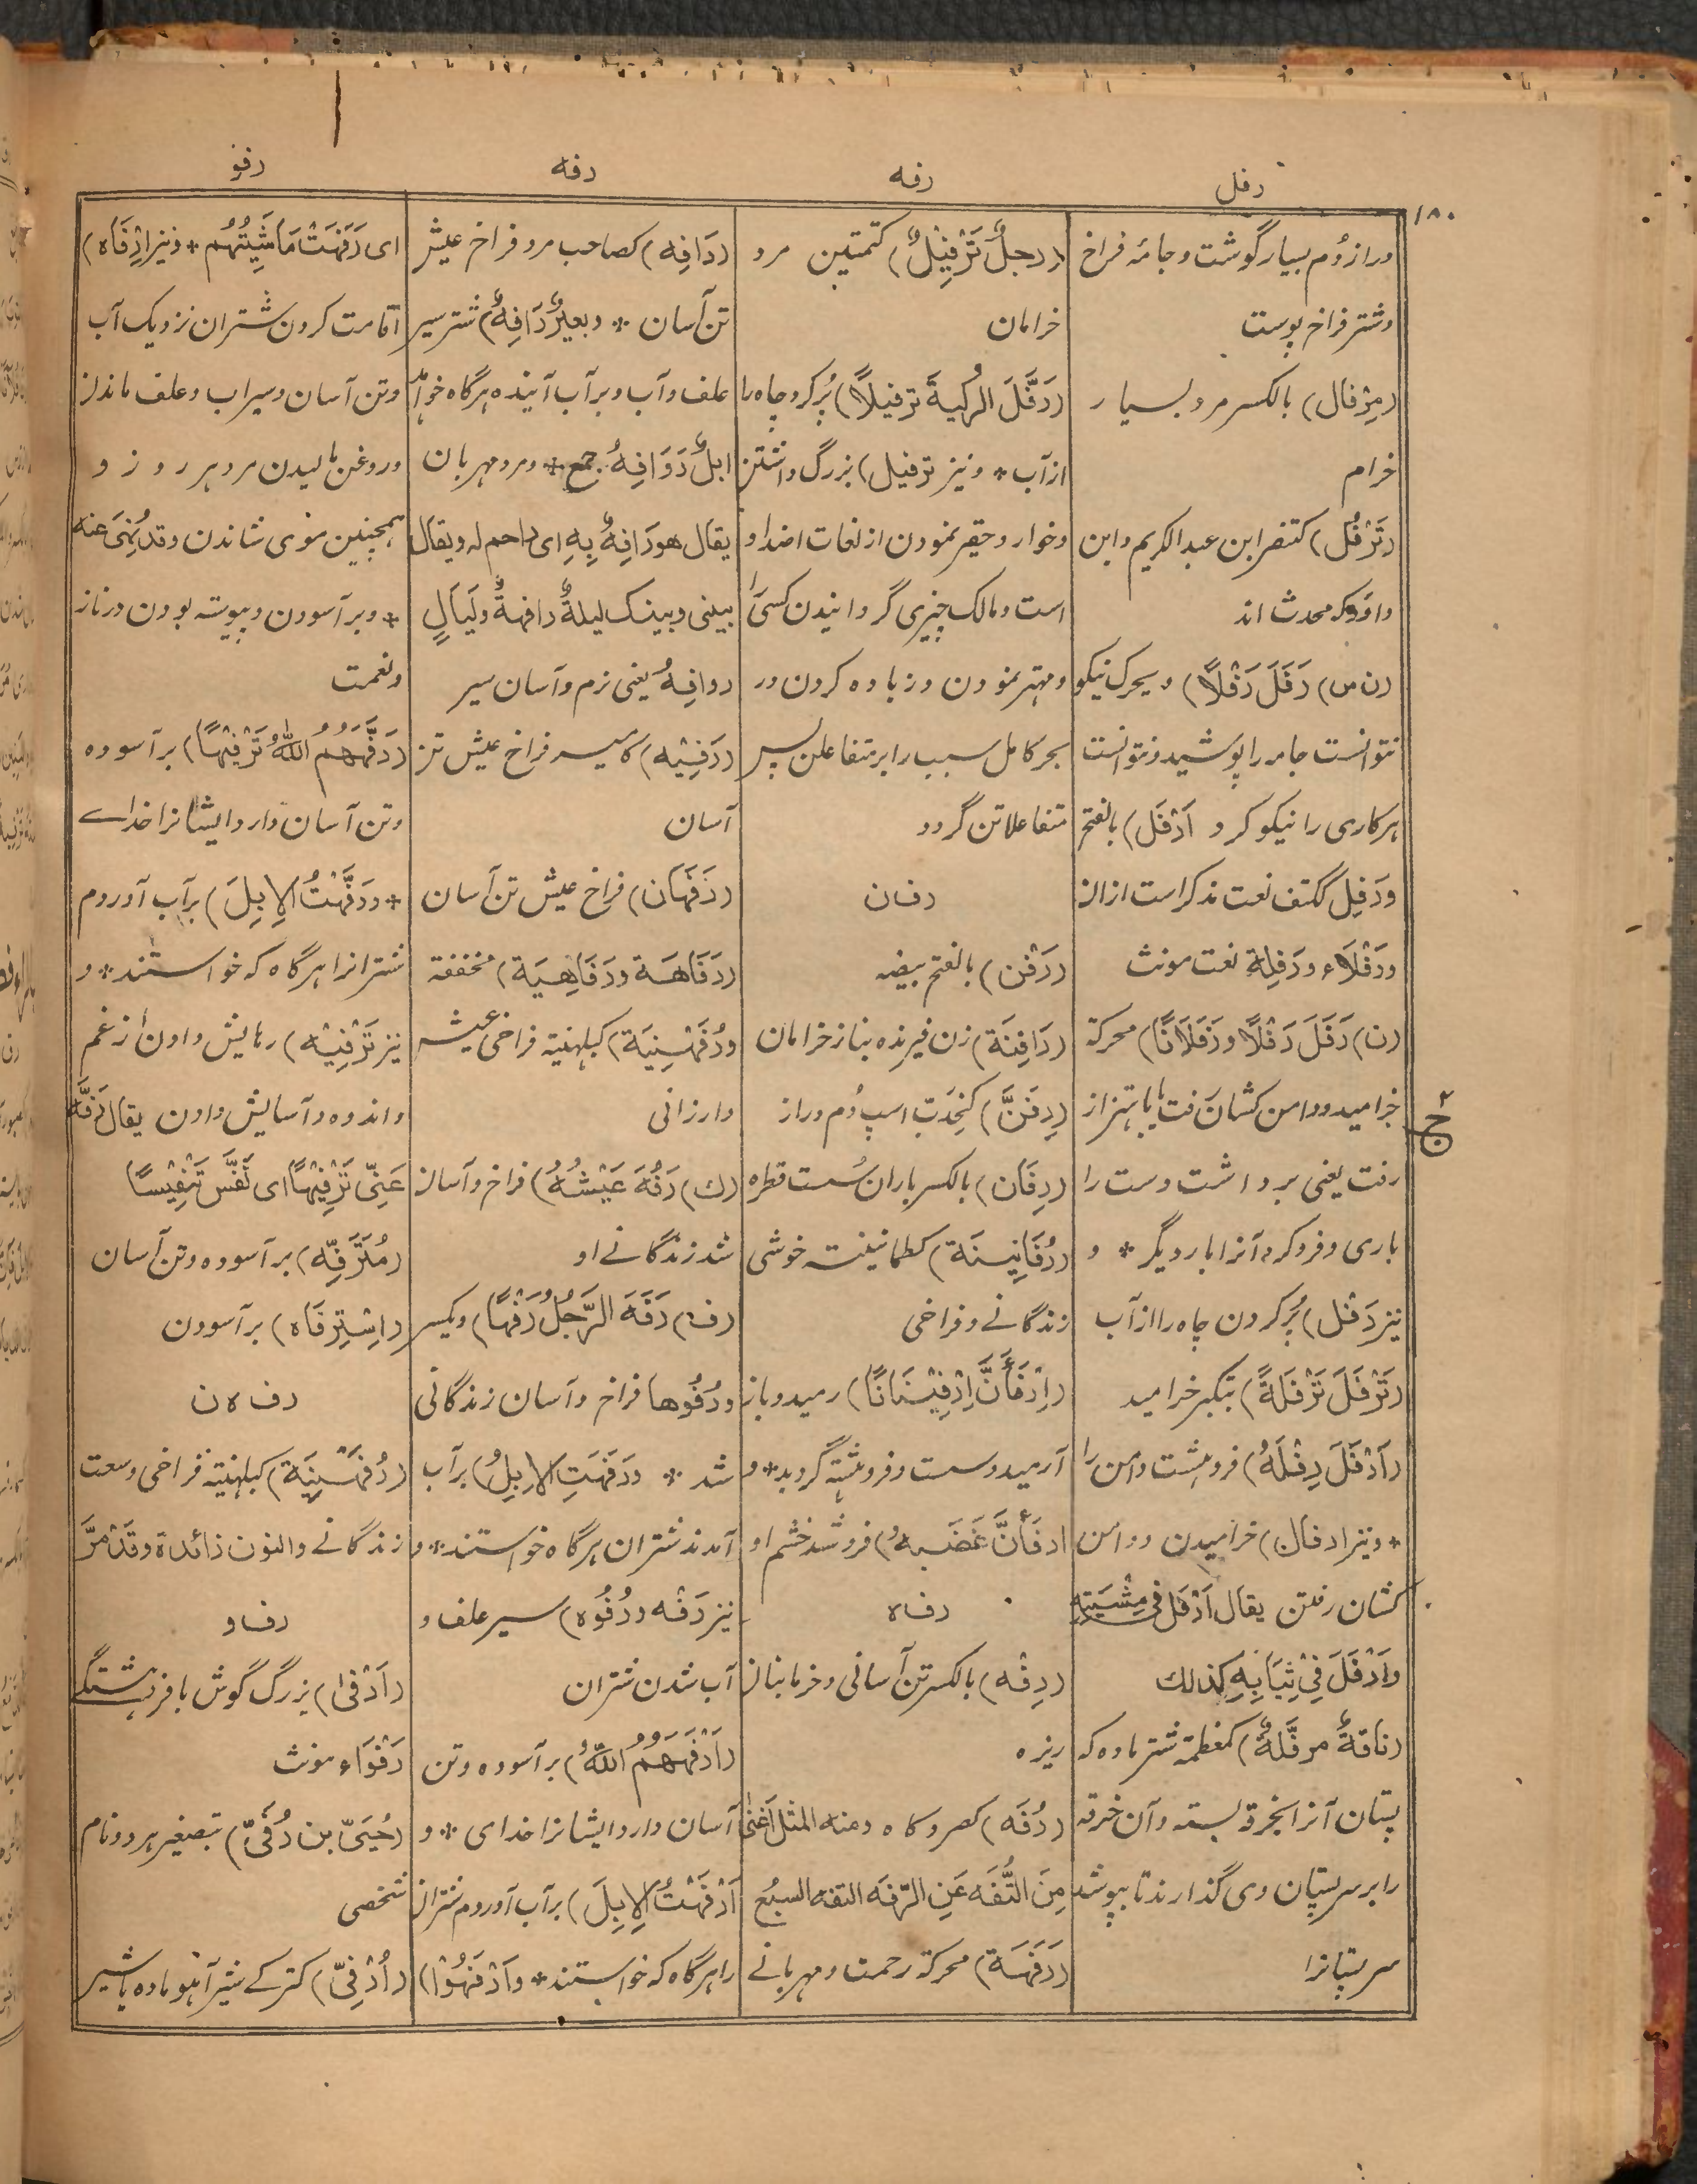 رفل
رفه
رفه
رفو
۱۸۰
دراز دُم بسیار گوشت و جامه فراخ
و شتر فراخ پوست
(مِرْفال) بالکسر مرد بسیار
خرام
(تَرْفُل) کتنصر ابن عبد الکریم و ابن
داؤد که محدث اند
(ن س) رَفَلَ رَفْلًا) و یحرک نیکو
نتوانست جامه را پوشید و نتوانست
هر کاری را نیکو کرد اَرْفَل) بالفتح
ورَفِل ککتف نعت مذکر است ازان
ورَفْلَاء ورَفِلة نعت مونث
(ن) رَفَلَ رَفْلًا ورَفَلَانًا) محرکة
خرامید و دامن کشان رفت یا باهتزاز
رفت یعنی برداشت دست را
باری و فرو کرد آنرا بار دیگر * و
نیز رَفْل) پُر کردن چاه را از آب
(تَرْفَلَ تَرْفَلَةً) بتکبر خرامید
(اَرْفَلَ رِفْلَهُ) فروهشت دامن را
* و نیز ارفال) خرامیدن و دامن
کشان رفتن یقال اَرْفَلَ فی مِشْیَتِهِ
واَرْفَلَ فِیْ ثِیَابِهِ کذلك
(ناقةٌ مرفَّلةٌ) کمعظمة شتر ماده که
پستان آنرا بخرقه بسته و آن خرقه
را بر سر پستان وی گذارند تا بپوشد
سر پستانرا
(رجلٌ تَرْفِیْلٌ) کتمتین مرد
خرامان
(رَفَّلَ الرکیةَ ترفیلًا) پُر کرد چاه را
از آب * و نیز ترفیل) بزرگ داشتن
و خوار و حقیر نمودن از لغات اضداد
است و مالک چیزی گردانیدن کسی را
و مهتر نمودن و زیاده کردن در
بحر کامل سبب را بر متفاعلن پس
متفاعلاتن گردد
رف ن
(رَفْن) بالفتح بیضه
(رَافِنَة) زن فیرنده بناز خرامان
(رِفَنّ) کخِدَبّ اسپ دُم دراز
(رِفَان) بالکسر باران سُست قطره
(رُفَانِینَة) کطمانینة خوشی
زندگانے و فراخی
(اِرْفَأَنَّ اِرْفِیْنَانًا) رمید و باز
آرمید و سست و فروهشته گردید * و
ارفَأَنَّ غَضَبهُ) فرو شد خشم او
رف ه
(رِفْه) بالکسر تن آسانی و خرما بنان
ریزه
(رُفَه) کصرد کاه ومنه المثل اَغنٰی
مِنَ التُّفَه عَنِ الرّفَه التفه السبُع
(رَفَهَة) محرکة رحمت و مهربانے
(رَافِه) کصاحب مرد فراخ عیش
تن آسان * وبعیرٌ رَافِهٌ) شتر سیر
علف و آب و بر آب آینده هرگاه خواهد
ابلٌ رَوَافِهُ جمع * و مرد مهربان
یقال هو رَافِهٌ بِهِ ای راحم له ویقال
بینی وبینک لیلةٌ رافهةٌ ولَیَالٍ
روافِهُ یعنی نرم و آسان سیر
(رَفِیْه) کامیر فراخ عیش تن
آسان
(رَفْهَان) فراخ عیش تن آسان
(رَفَاهَة ورَفَاهِیَة) مخففة
ورُفَهْنِیَة) کبلهنیة فراخی عیش
و ارزانی
(ك) رَفُهَ عَیْشُهُ) فراخ و آسان
شد زندگانے او
(ف) رَفَهَ الرَّجُلُ رَفْهًا) ویکسر
ورُفُوها فراخ و آسان زندگانی
شد * ورَفَهَتِ الابِلُ) بر آب
آمدند شتران هرگاه خواستند * و
نیز رَفْه ورُفُوه) سیر علف و
آب شدن شتران
(اَرْفَهَهُمُ اللّٰهُ) بر آسوده و تن
آسان دارد ایشانرا خدای * و
اَرْفَهْتُ الاِبِلَ) بر آب آوردم شتران
را هرگاه که خواستند * واَرْفَهُوْا)
ای رَفَهَتْ مَاشِیَتُهُم * و نیز اِرْفَاه)
اقامت کردن شتران نزدیک آب
و تن آسان و سیراب و علف ماندن
و روغن مالیدن مرد هر روز و
همچنین موی شاندن وقد نُهِیَ عنه
* و بر آسودن و پیوسته بودن در ناز
و نعمت
(رَفَّهَهُمُ اللّٰهُ تَرْفِیْهًا) بر آسوده
و تن آسان دارد ایشانرا خداے
* ورَفَّهْتُ الاِبِلَ) بر آب آوردم
شترانرا هرگاه که خواستند * و
نیز تَرْفِیْه) رهایش دادن از غم
و اندوه و آسایش دادن یقال رَفّه
عَنِّی تَرْفِیْهًا ای نَفَّسَ تَنْفِیْسًا
(مُتَرَفِّه) بر آسوده و تن آسان
(اِسْتِرْفَاه) بر آسودن
رف ه ن
(رُفَهْنِیَة) کبلهنیة فراخی و سعت
زندگانے والنون زائدة وقد مَرّ
رف و
(اَرْفٰی) بزرگ گوش با فروهشتگی
رَفْوَاء مونث
(حُیَیّ بن رُفَیّ) بتصغیر هر دو نام
شخصی
(اُرْفِیّ) کترکے شیر آهو ماده یا شیر
ح